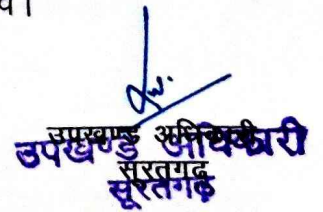 उपखण्ड अधिकारी
सूरतगढ़
उपखण्ड अधिकारी
सूरतगढ़